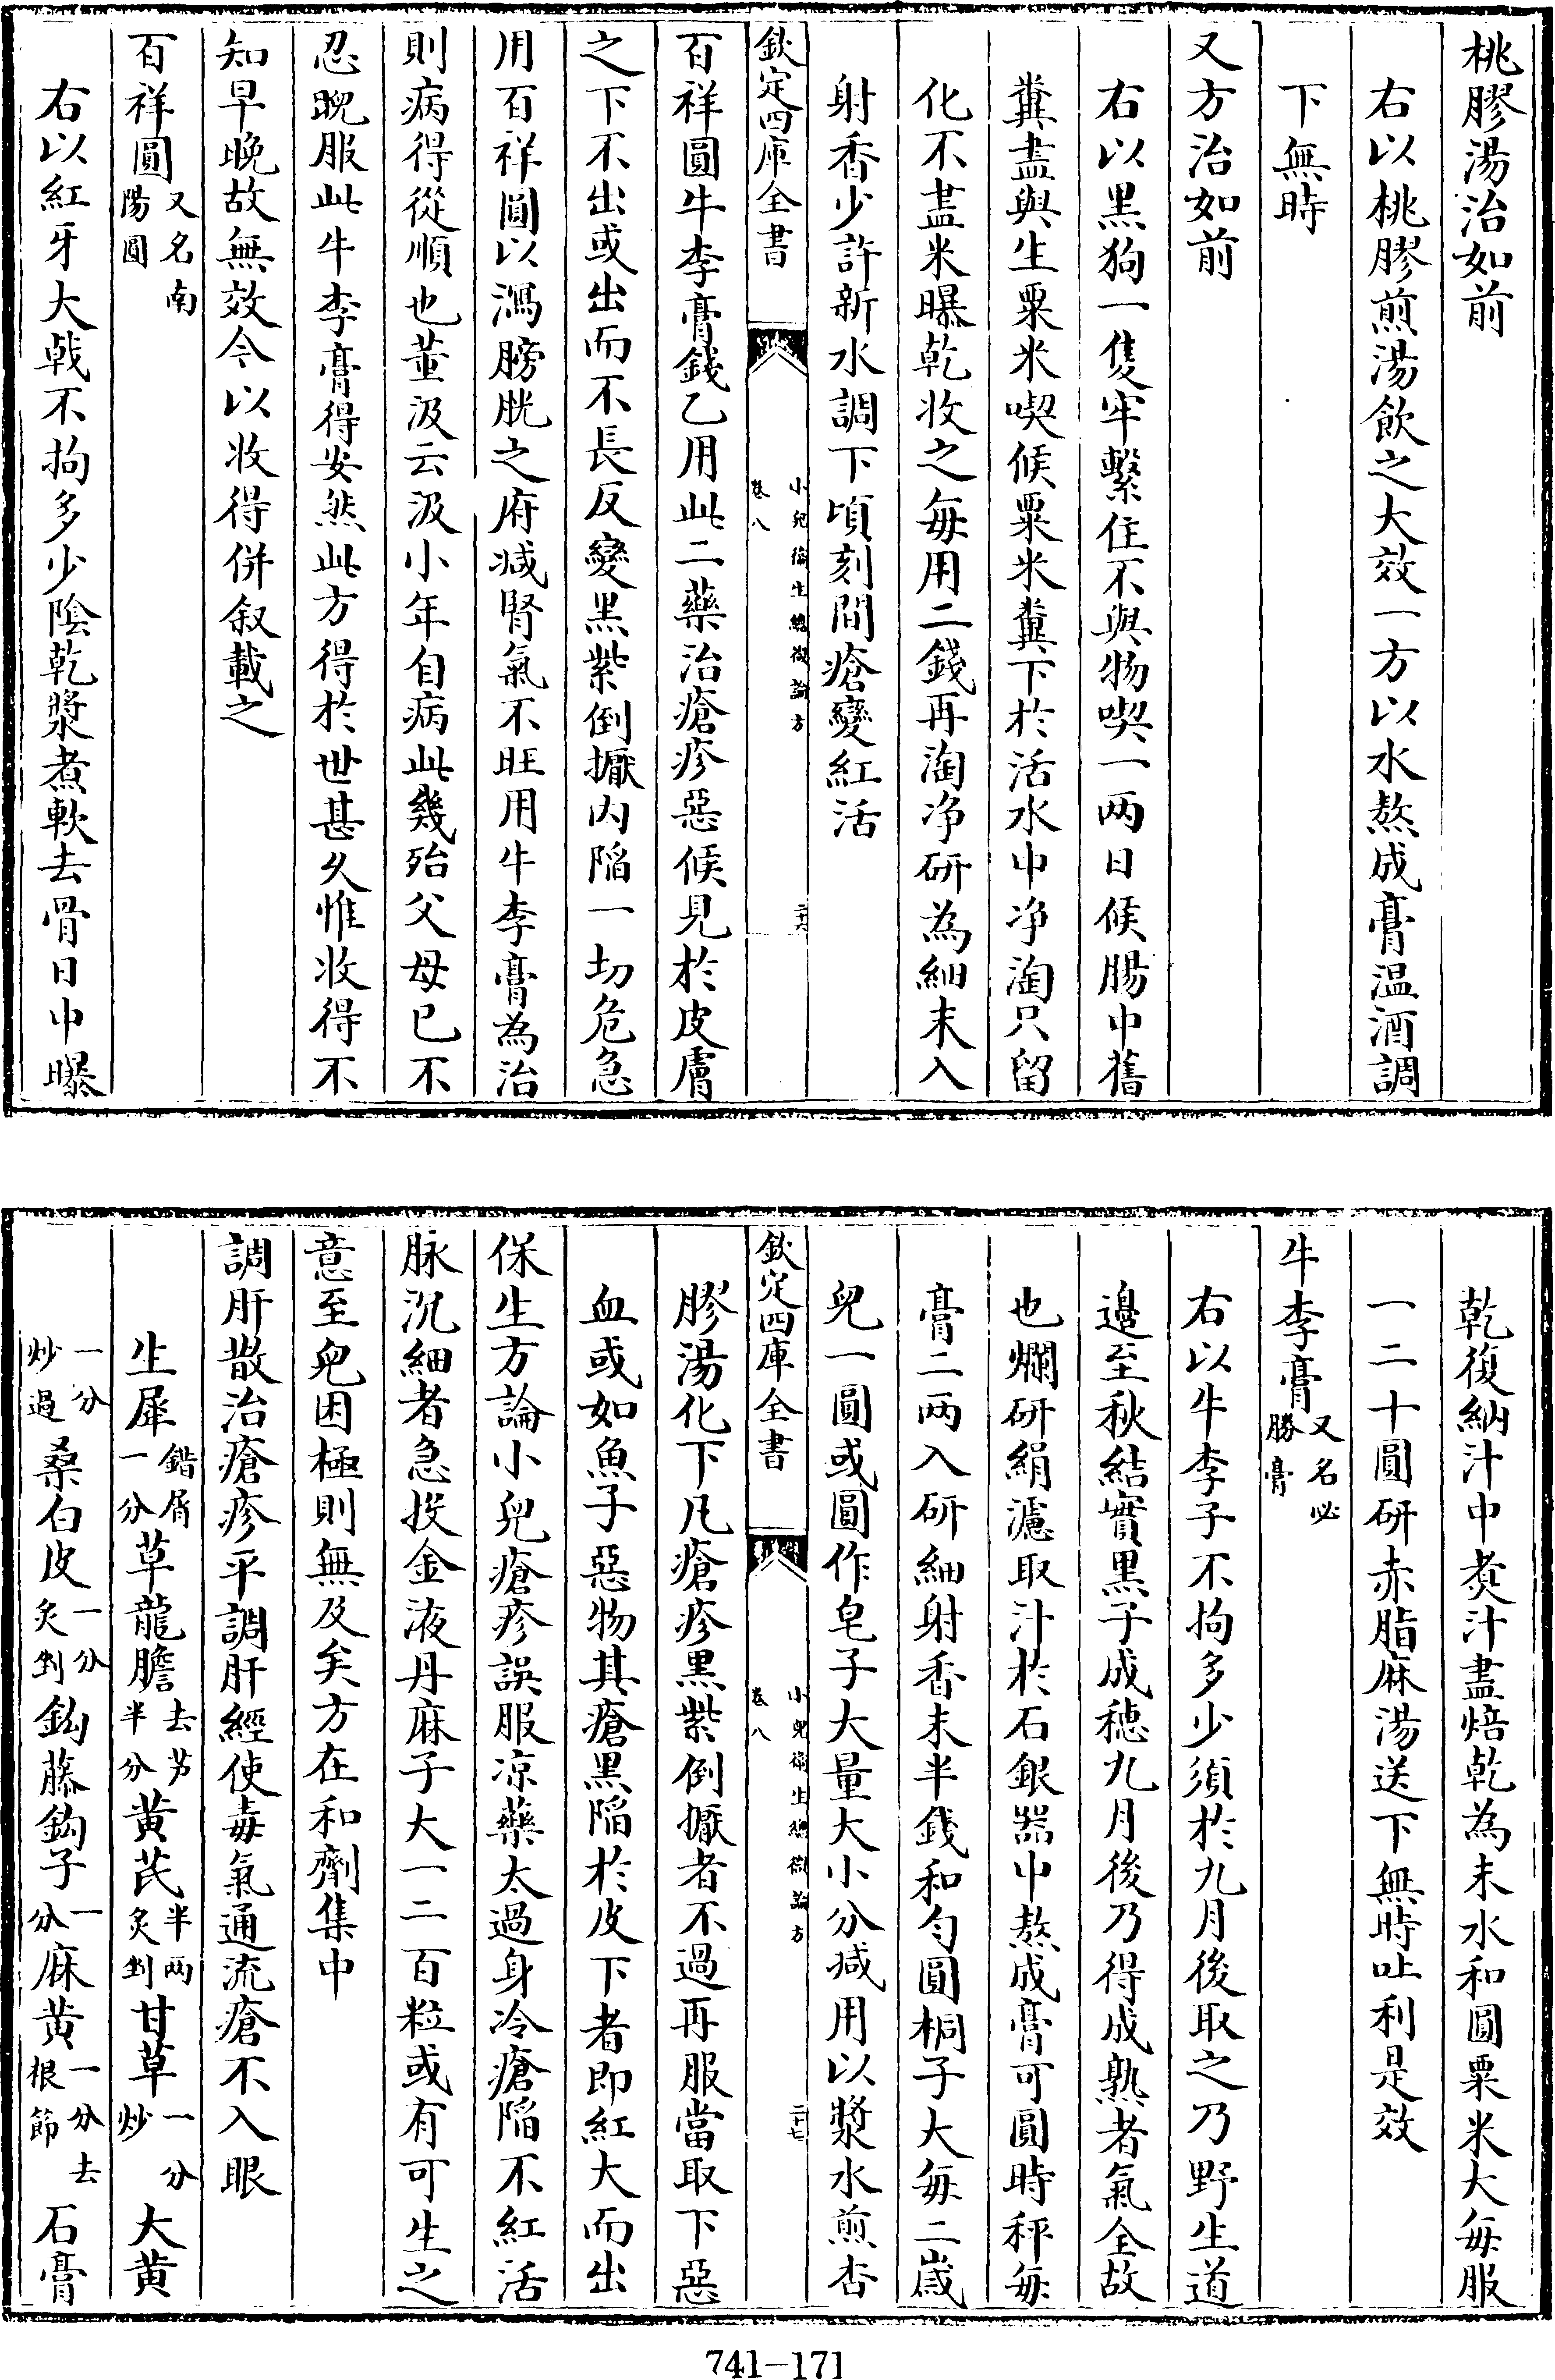 桃膠湯治如前
右以桃膠煎湯飲之大效一方以水熬成膏温酒調
下無時
又方治如前
右以黑狗一隻牢繫住不與物喫一兩日候腸中舊
糞盡與生粟米喫候粟米糞下於活水中净淘只留
化不盡米曝乾收之每用二錢再淘净研為細末入
射香少許新水調下頃刻間瘡變紅活
欽定四庫全書
小兒衛生總微論方
卷八
二十六
百祥圓牛李膏錢乙用此二藥治瘡疹惡候見於皮膚
之下不出或出而不長反變黑紫倒擫内陷一切危急
用百祥圓以瀉膀胱之府減腎氣不旺用牛李膏為治
則病得從順也董汲云汲小年自病此幾殆父母已不
忍晲服此牛李膏得安然此方得於世甚久惟收得不
知早晚故無效今以收得併叙載之
百祥圓又名南
陽圓
右以紅牙大戟不拘多少陰乾漿煮軟去骨日中曝
乾復納汁中煑汁盡焙乾為末水和圓粟米大每服
一二十圓研赤脂麻湯送下無時吐利是效
牛李膏又名必
勝膏
右以牛李子不拘多少須於九月後取之乃野生道
邊至秋結實黑子成穗九月後乃得成熟者氣全故
也爛研絹濾取汁於石銀器中熬成膏可圓時秤每
膏二兩入研細射香末半錢和勻圓桐子大每二歲
兒一圓或圓作皂子大量大小分減用以漿水煎杏
欽定四庫全書
小兒衛生總微論方
卷八
二十七
膠湯化下凡瘡疹黑紫倒擫者不過再服當取下惡
血或如魚子惡物其瘡黑陷於皮下者即紅大而出
保生方論小兒瘡疹誤服凉藥太過身冷瘡陷不紅活
脉沉細者急投金液丹麻子大一二百粒或有可生之
意至兒困極則無及矣方在和劑集中
調肝散治瘡疹平調肝經使毒氣通流瘡不入眼
生犀鎊屑
一分草龍膽去芀
半分黄芪半兩
炙剉甘草一分
炒大黄
一分
炒過桑白皮一分
炙剉鈎藤鈎子一
分麻黄一分去
根節石膏
741-171